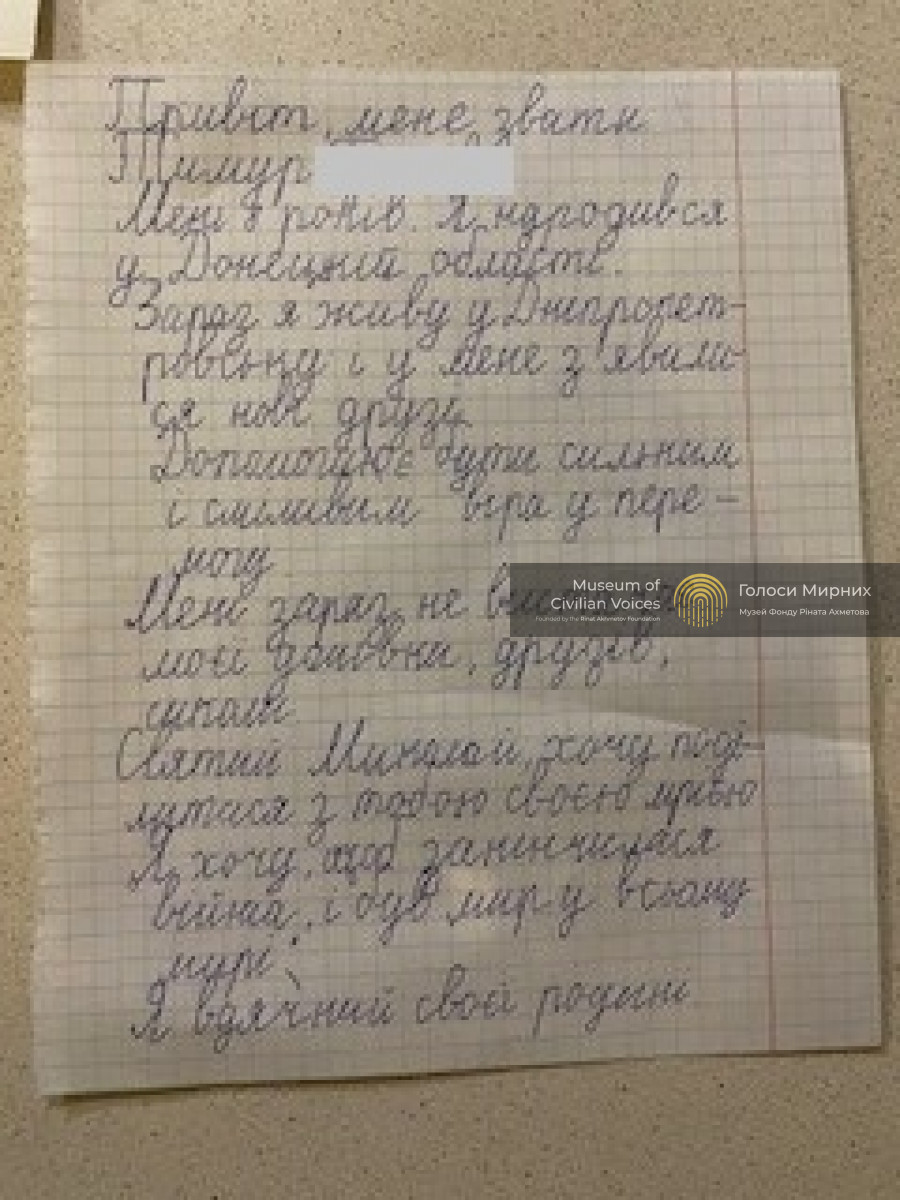 Привіт, мене звати
Тимур
Мені 8 років. Я народився
у Донецкий області.
Зараз я живу у Дніпропет-
ровську і у мене з'явили-
ся нові друзі.
Допомогає бути сильним
і сміливим віра у пере-
могу
Мені зараз не
моєї домовки, друзів,
школи.
Святий Миколай, хочу поді-
литися з тобою своєю мрією
Я хочу, щоб закінчилася
війна, і був мир у всьому
мирі.
Я вдячний своєї родині
Museum of
Civilian Voices
Founded by the Rinat Akhmetov Foundation
Голоси Мирних
Музей Фонду Ріната Ахметова